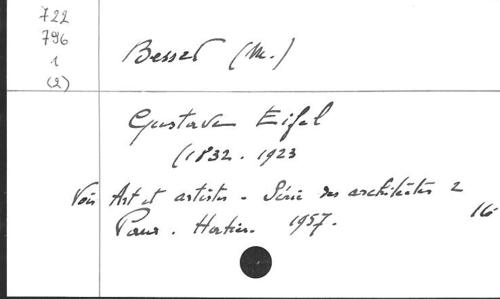 722
796
1
(2)
Besset (M.)
Gustave Eifel
(1832. 1923
Voir Art et artistes - Série des architectes 2
Paris. Hartier. 1957.
16